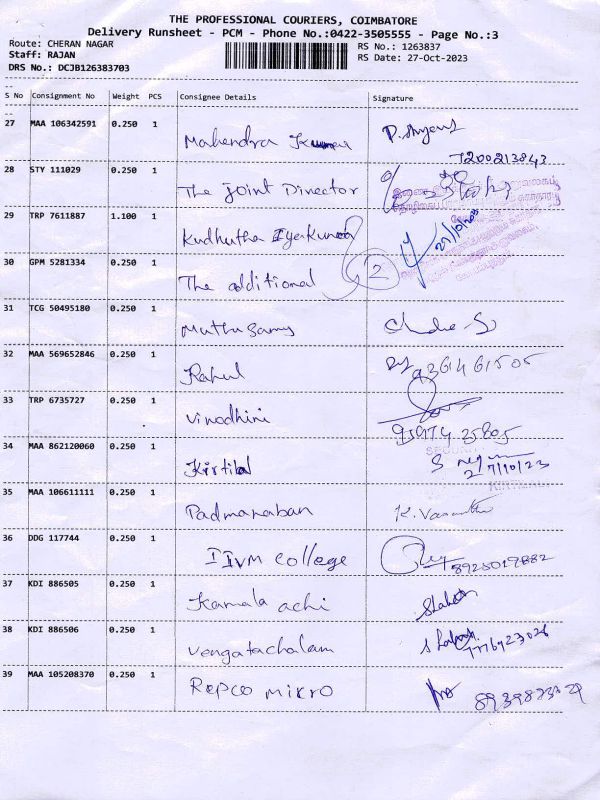 THE PROFESSIONAL COURIERS, COIMBATORE
Delivery Runsheet - PCM - Phone No.:0422-3505555 - Page No.:3
Route: CHERAN NAGAR RS No.: 1263837
Staff: RAJAN RS Date: 27-Oct-2023
DRS No.: DCJB126383703
S No Consignment No Weight PCS Consignee Details Signature
27 MAA 106342591 0.250 1 Mahendra Kumar
7200213843
28 STY 111029 0.250 1 The Joint Director
29 TRP 7611887 1.100 1 Kudhutha 27/10/23
30 GPM 5281334 0.250 The additional 2
31 TCG 50495180 0.250 1 Muthusamy
32 MAA 569652846 0.250 1 Rahul 9361461505
33 TRP 6735727 0.250 1 Vinodhini
95974 25805
34 MAA 862120060 0.250 1 Kirtilal
27/10/23
35 MAA 106611111 0.250 1 Padmanaban K. Vasantha
36 DDG 117744 0.250 1 IIVM College
37 KDI 886505 0.250 1 Kamala achi
38 KDI 886506 0.250 1 Vengatachalam
39 MAA 105208370 0.250 1 Repco mikro